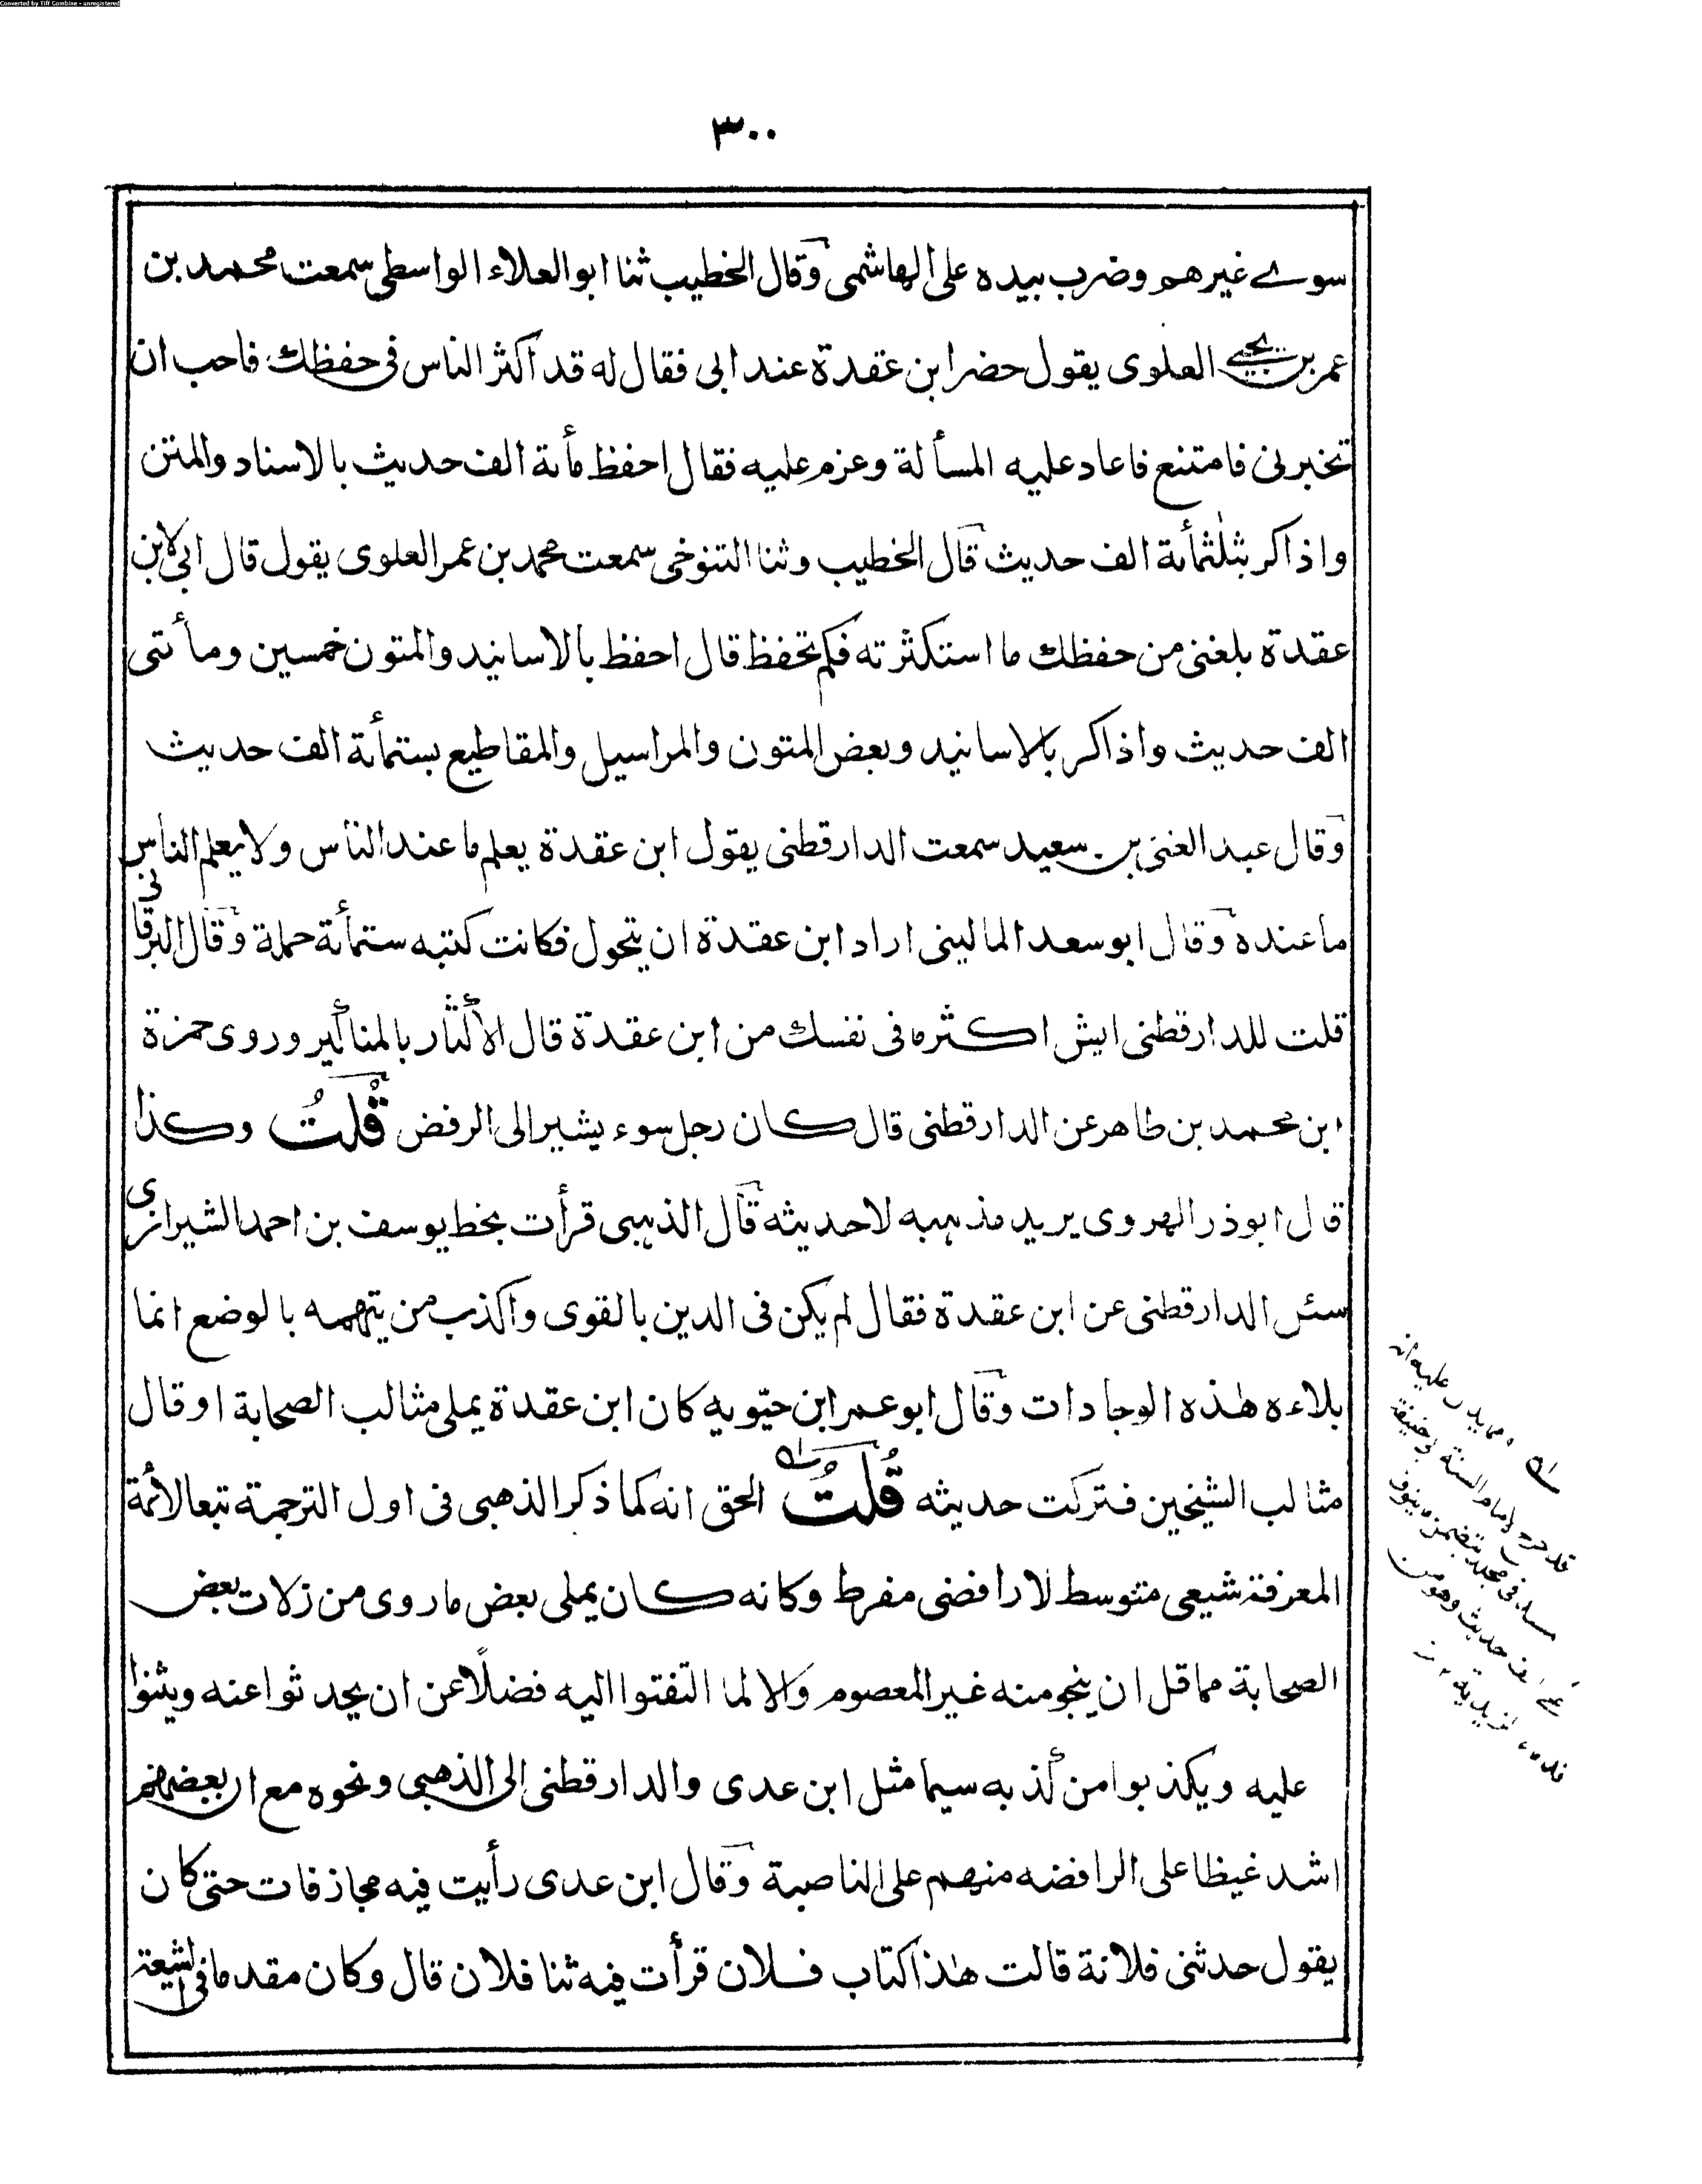 Converted by Tiff Combine - unregistered
٣٠٠
سوے غيرهم وضرب بيده على الهاشمى وقال الخطيب ثنا ابو العلاء الواسطى سمعت محمد بن
عمر بن يحيے العلوى يقول حضر ابن عقدة عند ابى فقال له قد اكثر الناس فى حفظك فاحب ان
تخبرنى فامتنع فاعاد عليه المسألة وعزم عليه فقال احفظ مأنة الف حديث بالاسناد والمتن
واذاكر بثلثمأة الف حديث قال الخطيب وثنا التنوخى سمعت محمد بن عمر العلوى يقول قال ابى لابن
عقدة بلغنى من حفظك ما استكثرته فكم تحفظ قال احفظ بالاسانيد والمتون خمسين ومأتى
الف حديث واذاكر بالاسانيد وبعض المتون والمراسيل والمقاطيع بستمأة الف حديث
وقال عبد الغنى بن سعيد سمعت الدارقطنى يقول ابن عقدة يعلم ما عند الناس ولا يعلم الناس
ما عنده وقال ابو سعد المالينى اراد ابن عقدة ان يتحول فكانت كتبه ستمأة حملة وقال البرقانى
قلت للدارقطنى ايش اكثر ما فى نفسك من ابن عقدة قال الاكثار بالمناكير وروى حمزة
ابن محمد بن طاهر عن الدارقطنى قال كان رجل سوء يشير الى الرفض قُلتُ وكذا
قال ابو ذر الهروى يريد مذهبه لا حديثه قال الذهبى قرأت بخط يوسف بن احمد الشيرازى
سئل الدارقطنى عن ابن عقدة فقال لم يكن فى الدين بالقوى واكذب من يتهمه بالوضع انما
بلاءه هذه الوجادات وقال ابو عمر ابن حيّويه كان ابن عقدة يملى مثالب الصحابة او قال
مثالب الشيخين فتركت حديثه قُلتُ الحق انه كما ذكر الذهبى فى اول الترجمة تبعا لائمة
المعرفة شيعى متوسط لا رافضى مفرط وكانه كان يملى بعض ما روى من زلات بعض
الصحابة مما قل ان ينجو منه غير المعصوم والا لما التفتوا اليه فضلًا عن ان يحدثوا عنه ويثنوا
عليه ويكذبوا من كذبه سيما مثل ابن عدى والدارقطنى الى الذهبى ونحوه مع ان بعضهم
اشد غيظا على الرافضه منهم على الناصبة وقال ابن عدى رأيت فيه مجازفات حتى كان
يقول حدثنى فلانة قالت هذا كتاب فلان قرأت فيه ثنا فلان قال وكان مقدما فى الشيعة
عليه انه
امام السنة
حديث وهو من